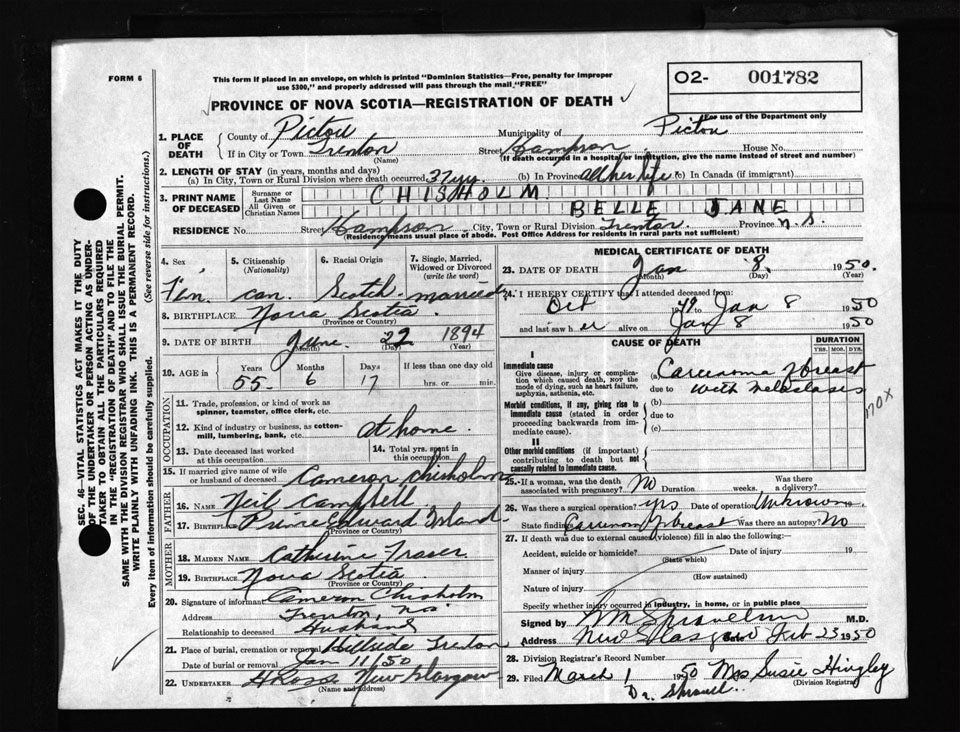 FORM 6
This form if placed in an envelope, on which is printed "Dominion Statistics—Free, penalty for improper
use $300," and properly addressed will pass through the mail "FREE"
O2- 001782
For use of the Department only
PROVINCE OF NOVA SCOTIA—REGISTRATION OF DEATH
1. PLACE OF DEATH
County of Pictou Municipality of Pictou
If in City or Town Trenton Street Hampson House No.
(Name) (If death occurred in a hospital or institution, give the name instead of street and number)
2. LENGTH OF STAY (in years, months and days)
(a) In City, Town or Rural Division where death occurred 37 yrs. (b) In Province all her life (c) In Canada (if immigrant)
3. PRINT NAME OF DECEASED
Surname or Last Name CHISHOLM
All Given or Christian Names BELLE JANE
RESIDENCE No. Street Hampson City, Town or Rural Division Trenton Province N.S.
(Residency means usual place of abode. Post Office Address for residents in rural parts not sufficient)
4. Sex 5. Citizenship (Nationality) 6. Racial Origin 7. Single, Married, Widowed or Divorced (write the word)
Fem. Can. Scotch married
8. BIRTHPLACE Nova Scotia
(Province or Country)
9. DATE OF BIRTH June 22 1894
(Month) (Day) (Year)
10. AGE in Years Months Days If less than one day old
55 6 17 hrs. or min.
OCCUPATION
11. Trade, profession, or kind of work as spinner, teamster, office clerk, etc.
12. Kind of industry or business, as cotton-mill, lumbering, bank, etc. at home
13. Date deceased last worked at this occupation
14. Total yrs. spent in this occupation
15. If married give name of wife or husband of deceased Cameron Chisholm
FATHER
16. NAME Neil Campbell
17. BIRTHPLACE Prince Edward Island
MOTHER
18. MAIDEN NAME Catherine Fraser
19. BIRTHPLACE Nova Scotia
(Province or Country)
20. Signature of informant Cameron Chisholm
Address Trenton, N.S.
Relationship to deceased Husband
21. Place of burial, cremation or removal Hillside Trenton
Date of burial or removal Jan 11/50
22. UNDERTAKER H Ross New Glasgow
(Name and Address)
MEDICAL CERTIFICATE OF DEATH
23. DATE OF DEATH Jan 8 1950.
(Month) (Day)
24. I HEREBY CERTIFY that I attended deceased from:
Oct 1949 to Jan 8 1950
and last saw her alive on Jan 8 1950
CAUSE OF DEATH DURATION
YRS. MOS. DYS.
I
Immediate cause
Give disease, injury or complication which caused death, NOT the mode of dying, such as heart failure, asphyxia, asthenia, etc.
(a) Carcinoma of breast
due to with metastases
170X
Morbid conditions, if any, giving rise to immediate cause (stated in order proceeding backwards from immediate cause).
(b)
due to
(c)
II
Other morbid conditions (if important) contributing to death but not causally related to immediate cause.
25. If a woman, was the death associated with pregnancy? No Duration weeks. Was there a delivery?
26. Was there a surgical operation? yes Date of operation Unknown
State finding Carcinoma of breast Was there an autopsy? No
27. If death was due to external causes (violence) fill in also the following:
Accident, suicide or homicide? Date of injury 19
(State which)
Manner of injury
(How sustained)
Nature of injury
Specify whether injury occurred in industry, in home, or in public place
Signed by M.D.
Address New Glasgow Feb 23 1950
28. Division Registrar's Record Number
29. Filed March 1 1950 Mrs Susie Hingley
(Division Registrar)
SEC. 46—VITAL STATISTICS ACT MAKES IT THE DUTY
OF THE UNDERTAKER OR PERSON ACTING AS UNDERTAKER
TO OBTAIN ALL THE PARTICULARS REQUIRED
IN THE "REGISTRATION OF DEATH" AND TO FILE THE
SAME WITH THE DIVISION REGISTRAR WHO SHALL ISSUE THE BURIAL PERMIT.
WRITE PLAINLY WITH UNFADING INK. THIS IS A PERMANENT RECORD.
Every item of information should be carefully supplied. (See reverse side for instructions.)